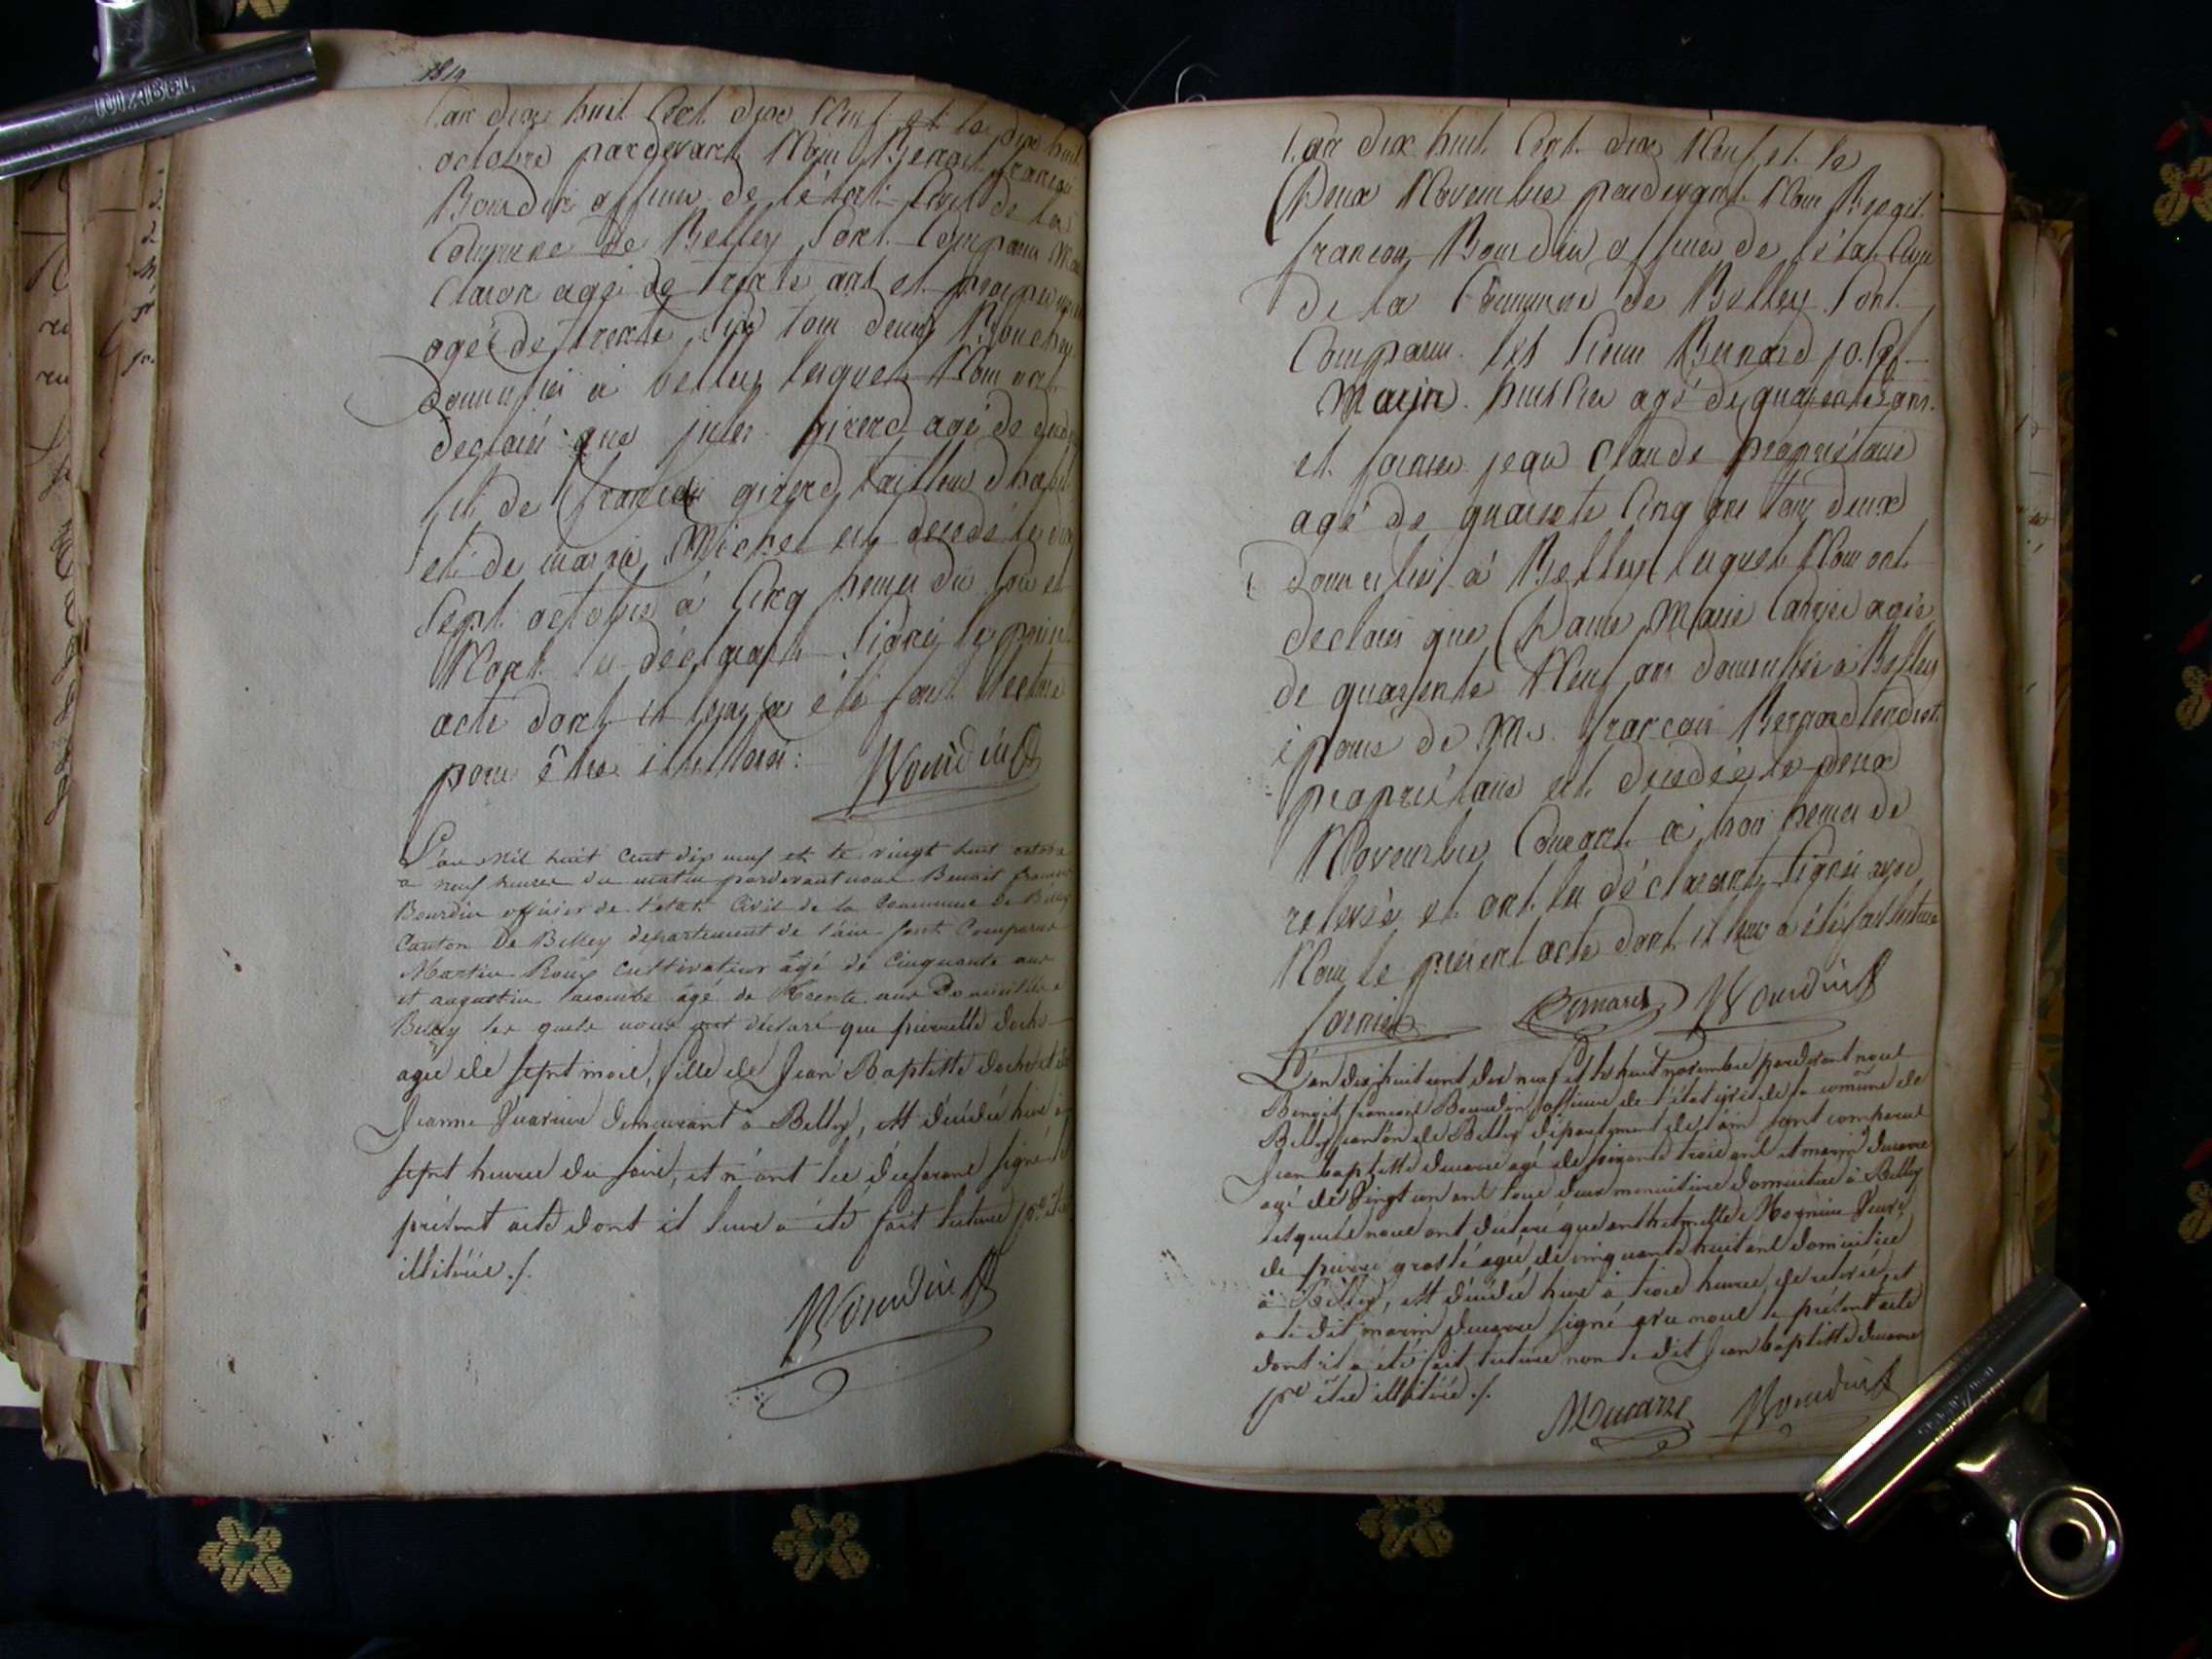 1819
L'an dix huit Cent dix Neuf et le dix huit
octobre pardevant Nous Benoit francois
Bourdin officier de l'état Civil de la
Commune de Belley Sont Comparu
Claron agé de trente ans et
agé de trente six tous deux Bouchers
domicilié à belley lesquels Nous ont
declaré que jules girerd agé de
fils de francois girerd tailleur d'habit
et de maria Michel est decedé le dix
Sept octobre à Cinq heures du Soir et
N'ont les déclarants Signé le présent
acte dont il leur a été fait lecture
pour être illettérés: Bourdin
L'an Mil huit Cent dix neuf et le vingt huit octobre
a neuf heures du matin pardevant nous Benoit francois
Bourdin officier de l'état Civil de la Commune de Belley
Canton De Belley departement de l'ain sont Comparus
Martin Roux Cultivateur âgé de Cinquante ans
et augustin âgé de trente ans Domiciliés a
Belley les quels nous ont déclaré que pierrette
agée de sept mois, fille de Jean Baptiste et de
Jeanne demeurant à Belley, est décédée hier à
sept heures du soir, et n'ont les déclarans signé le
présent acte dont il leur a été fait lecture pr. être
illitérés ./.
Bourdin
L'an dix huit Cent dix Neuf et le
Deux Novembre pardevant Nous Benoit
francois Bourdin officier de l'état Civil
de la Commune de Belley Sont
Comparu les Sieurs Bernard
Marin huissier agé de quarante ans.
et jean Claude propriétaire
agé de quarante Cinq ans tous deux
domiciliés à Belley lesquels Nous ont
declaré que Dame Marie agée
de quarente Neuf ans domiciliée à Belley
épouse de Mr. francois Bernard
propriétaire est decedée le deux
Novembre Courant à trois heures de
relevée et ont les déclarants Signé avec
Nous le present acte dont il leur a été fait lecture
Bernard Bourdin
L'an dix huit cent dix neuf et le huit novembre pardevant nous
Benoit francois Bourdin officier de l'état civil de la comune de
Belley canton de Belley département de l'ain sont comparus
Jean baptiste ducarre agé de soixante trois ans et marin ducarre
agé de vingt un ans tous deux menuisiers domiciliés à Belley
lesquels nous ont déclaré que anthelmette veuve
de pierre agée de cinquante huit ans domiciliée
à Belley, est décédée hier à trois heures de relevée, et
a le dit marin ducarre signé avec nous le présent acte
dont il a été fait lecture non le dit Jean baptiste ducarre
pr être illitéré ./.
MDucarre Bourdin